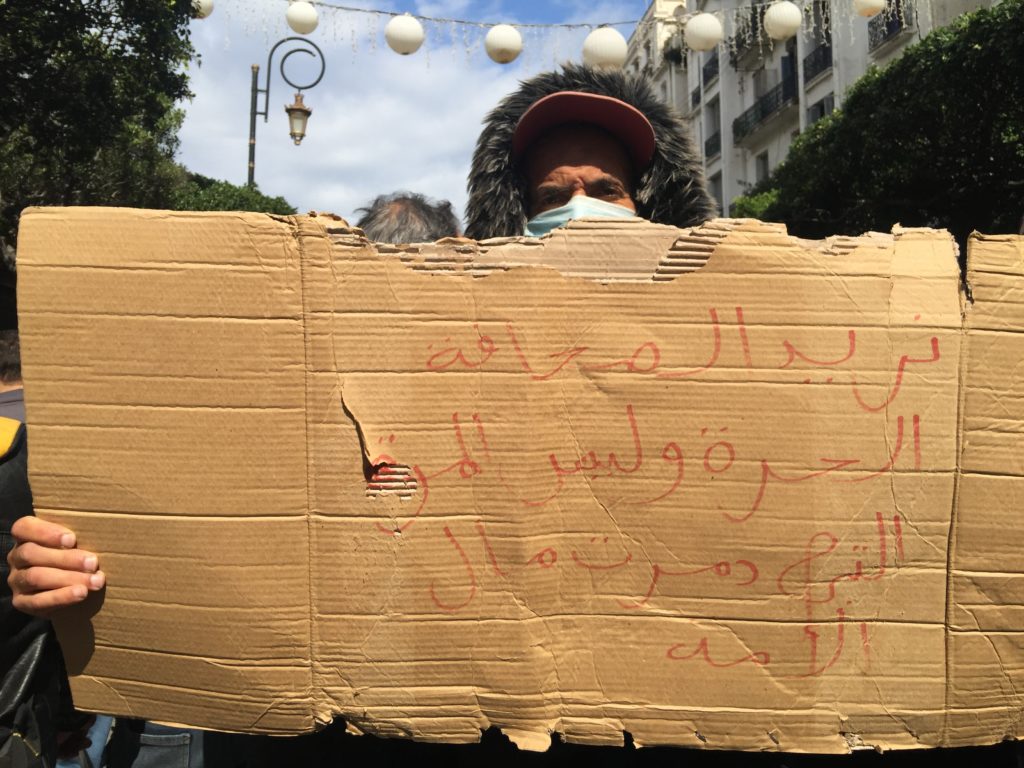 نريد الصحافة
الحرة وليس
التي دمرت مال
الأمه